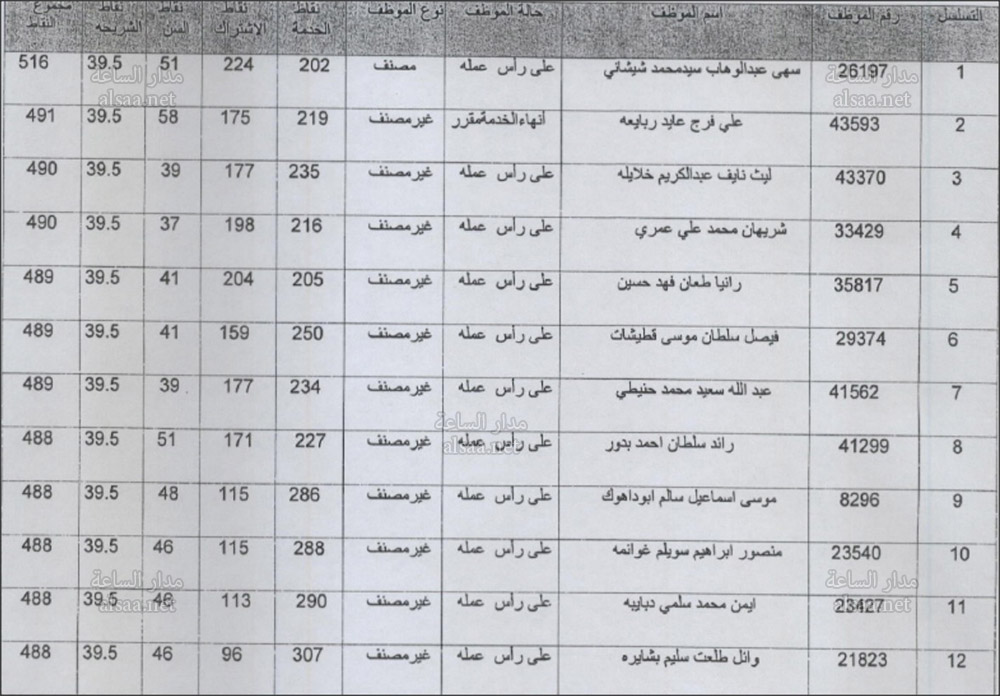 التسلسل رقم الموظف اسم الموظف حالة الموظف نوع الموظف نقاط الخدمة نقاط الاشتراك نقاط السن نقاط الشريحه مجموع النقاط
1 26197 سهى عبدالوهاب سيدمحمد شيشاني على رأس عمله مصنف 202 224 51 39.5 516
مدار الساعة
alsaa.net
مدار الساعة
alsaa.net
2 43593 علي فرج عايد ربايعه أنهاءالخدمةمقرر غيرمصنف 219 175 58 39.5 491
3 43370 ليث نايف عبدالكريم خلايله على رأس عمله غيرمصنف 235 177 39 39.5 490
4 33429 شريهان محمد علي عمري على رأس عمله غيرمصنف 216 198 37 39.5 490
5 35817 رانيا طعان فهد حسين على رأس عمله غيرمصنف 205 204 41 39.5 489
6 29374 فيصل سلطان موسى قطيشات على رأس عمله غيرمصنف 250 159 41 39.5 489
7 41562 عبد الله سعيد محمد حنيطي على رأس عمله غيرمصنف 234 177 39 39.5 489
مدار الساعة
alsaa.net
8 41299 رائد سلطان احمد بدور على رأس عمله غيرمصنف 227 171 51 39.5 488
9 8296 موسى اسماعيل سالم ابوداهوك على رأس عمله غيرمصنف 286 115 48 39.5 488
10 23540 منصور ابراهيم سويلم غوانمه على رأس عمله غيرمصنف 288 115 46 39.5 488
مدار الساعة
alsaa.net
مدار الساعة
alsaa.net
11 23427 ايمن محمد سلمي دبايبه على رأس عمله غيرمصنف 290 113 46 39.5 488
12 21823 وائل طلعت سليم بشايره على رأس عمله غيرمصنف 307 96 46 39.5 488